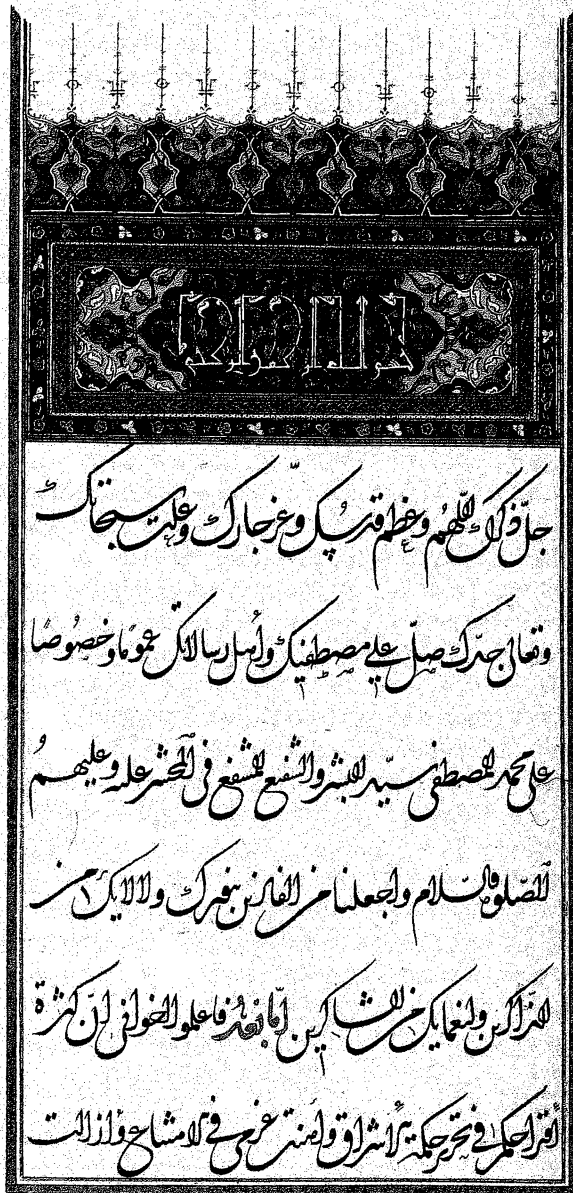 بسم الله الرحمن الرحيم
جلّ ذكرك اللّهمُ وعظم قدسك وعزّ جارك وعلت سبحاتك
وتعالى جدّك صلّ على مصطفيك وأهل رسالاتك عمومًا وخصُوصًا
على محمد المصطفى سيّد البشر والشفيع المشفع فى المحشر عليه وعليهمُ
الصلوة والسلام واجعلنا من الفايزين بنورك ولالايك من
الذاكرين ولنعمايك من الشاكرين أمّا بعدُ فاعلموا اخوانى انّ كثرة
أقتراحكم فى تحرير حكمة الاشراق اوهنت عزمى فى الامتناع وأزالت